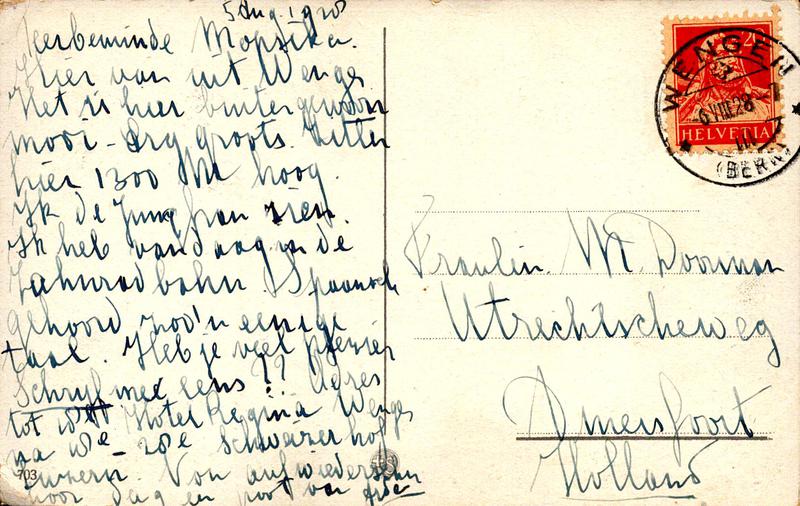 5 Aug 1928
Zeerbeminde Mopsika.
Hier van uit Wengen
Het is hier buitengewoon
mooi - Erg groots. Zitten
hier 1300 M hoog.
Ik de Jungfrau zien.
Ik heb vandaag in de
Zahnradbahn Spaansch
gehoord zoo'n eenige
taal. Heb je veel plezier
Schrijf mee eens ?? Adres
tot Hotel Regina Wengen
na 10e Schweizerhof
Luzern. Von aufwiedersehn
hoor dag en poot van
703
WENGEN
6.VIII.28
(BERN)
20
HELVETIA
Fraulein. M. Doorman
Utrechtscheweg
Amersfoort
Holland